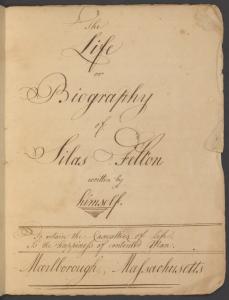 The
Life
or
Biography
of
Silas Felton
written by
himself.
To obtain the Casualties of Life
Is the happiness of contented Man.
Marlborough, Massachusetts